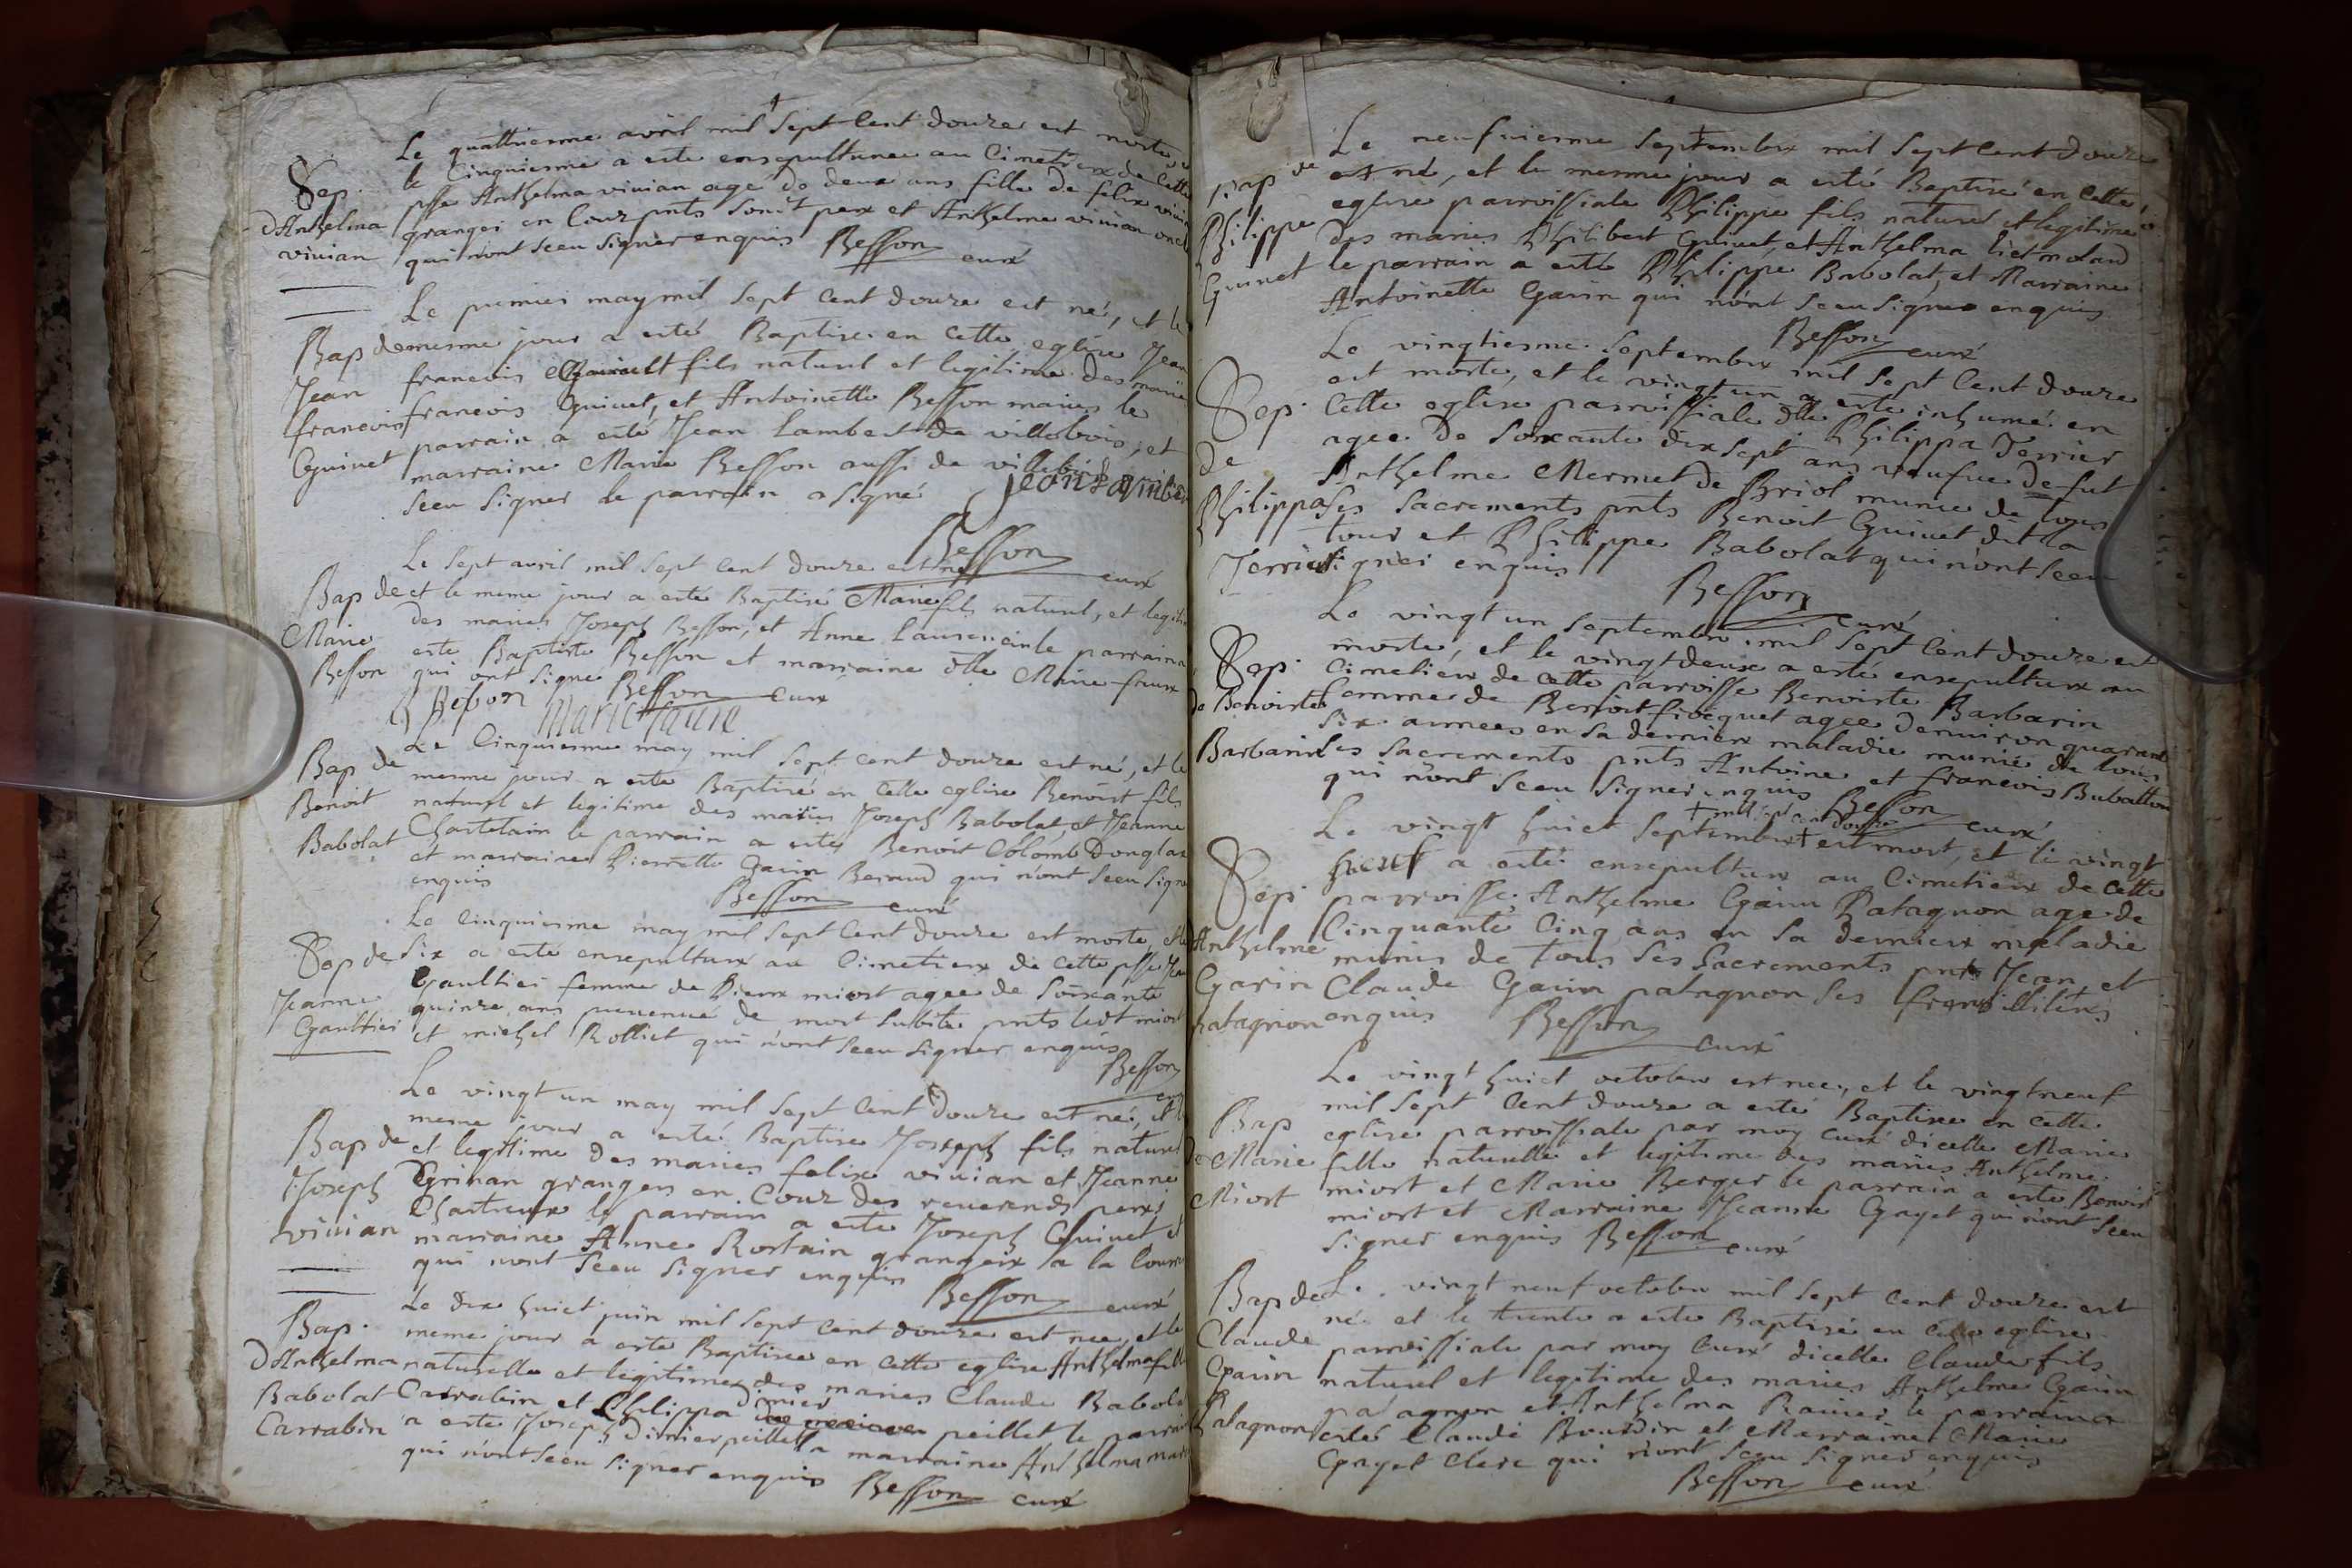 Le quattriesme avril mil sept cent douze est morte, et
le cinquiesme a esté ensepulturee au cimetiere de cette
Sep.
d'Anthelma
vivian
psse Anthelma vivian agé de deux ans fille de felix vivian
granger en Cour pnts sondt pere et Anthelme vivian oncle
qui n'ont sceu signer enquis Besson curé
Le premier may mil sept cent douze est né, et le
Bap de
Jean
francois
Guinet
mesme jour a esté Baptisé en cette eglise Jean
francois fils naturel et legitime des mariés
francois Guinet, et Antoinette Besson mariés le
parrain a esté Jean Lambert de villebois, et
marraine Marie Besson aussi de villebois
sceu signer le parrain a signé Jean Lamber
Besson curé
Le sept avril mil sept cent douze est né
Bap de
Marie
Besson
et le meme jour a esté Baptisé Marie fils naturel, et legiti
des mariés Joseph Besson, et Anne le parrain a
esté Baptiste Besson et marraine dlle Marie faure
qui ont signé Besson curé
B Beson Marie faure
Le Cinquiesme may mil sept cent douze est né, et le
Bap de
Benoit
Babolat
mesme jour a esté Baptisé en cette eglise Benoist fils
naturel et legitime des mariés Joseph Babolat, et Jeanne
Chastelain le parrain a esté Benoit Colomb Donglas
et marraine Pierrette Garin Beraud qui n'ont sceu signe
enquis Besson curé
Le cinquiesme may mil sept cent douze est morte, et le
Sep de
Jeanne
Gaultier
six a esté ensepulture au Cimetiere de cette psse Jean
Gaultier femme de Pierre miort agee de soixante
quinze ans prevenue de mort subite pnts miort
et michel Rolliet qui n'ont sceu signer enquis
Besson
curé
Le vingt un may mil sept cent douze est né, et le
Bap de
Joseph
vivian
meme jour a esté Baptise Joseph fils naturel
et legitime des mariés felix vivian et Jeanne
Grinan grangers en Cour des reverends peres
Chartreux le parrain a esté Joseph Guinet et
marraine Anne Rostain grangere a la
qui n'ont sceu signer enquis Besson curé
Le dix huict juin mil sept cent douze est nee, et le
Bap.
d'Anthelma
Babolat
Carrabin
meme jour a esté Baptisee en cette eglise Anthelma fille
naturelle et legitime des mariés Claude Babolat
Carrabin et Philippa Dimier peillet le parrain
a esté Joseph Dimier peillet la marraine Anthelma
qui n'ont sceu signer enquis Besson curé
Le neufviesme septembre mil sept cent douze
Bap de
Philippe
Guinet
est né, et le mesme jour a esté Baptisé en cette
eglise parroissiale Philippe fils naturel et legitime
des mariés Philibert Guinet, et Anthelma
le parrain a esté Philippe Babolat, et Marraine
Antoinette Garin qui n'ont sceu signer enquis
Besson curé
Le vingtiesme septembre mil sept cent douze
Sep.
de
Philippa
Terrier
est morte, et le vingt un a esté inhumé en
cette eglise parroissiale dlle Philippa Terrier
agee de soixante dix sept ans veufve de fut
Anthelme Mermet de Briol munie de tous
ses sacrements pnts Benoit Guinet dit la
tour et Philippe Babolat qui n'ont sceu
signer enquis Besson curé
Le vingt un septembre mil sept cent douze est
Sep.
de Benoiste
Barbarin
morte, et le vingt deux a esté ensepulture au
cimetiere de cette parroisse Benoiste Barbarin
femme de Benoist agee denviron quarante
six annees en sa derniere maladie munie de tous
ses sacrements pnts Antoine et francois
qui n'ont sceu signer enquis Besson curé
+ mil sept cent douze
Le vingt huict septembre + est mort, et le vingt
Sep.
Anthelme
Garin
patagnon
a esté ensepulture au Cimetiere de cette
parroisse Anthelme Garin Patagnon age de
Cinquante Cinq ans en sa derniere maladie
munis de tous ses sacrements pnts Jean, et
Claude Garin patagnon ses freres illiterés
enquis Besson curé
Le vingt huict octobre est nee, et le vingt neuf
Bap
de Marie
Miort
mil sept cent douze a esté Baptisee en cette
eglise parroissiale par moy curé dicelle Marie
fille naturelle et legitime des mariés Anthelme
miort et Marie Berger le parrain a esté Benoist
miort et Marraine Jeanne Gayet qui n'ont sceu
signer enquis Besson curé
Le vingt neuf octobre mil sept cent douze est
Bap de
Claude
Garin
Patagnon
né et le trente a esté Baptisé en cette eglise
parroissiale par moy curé dicelle Claude fils
naturel et legitime des mariés Anthelme Garin
patagnon et Anthelma le parrain a
esté Claude Bourdin et Marraine Marie
Gayet Clerc qui n'ont sceu signer enquis
Besson curé